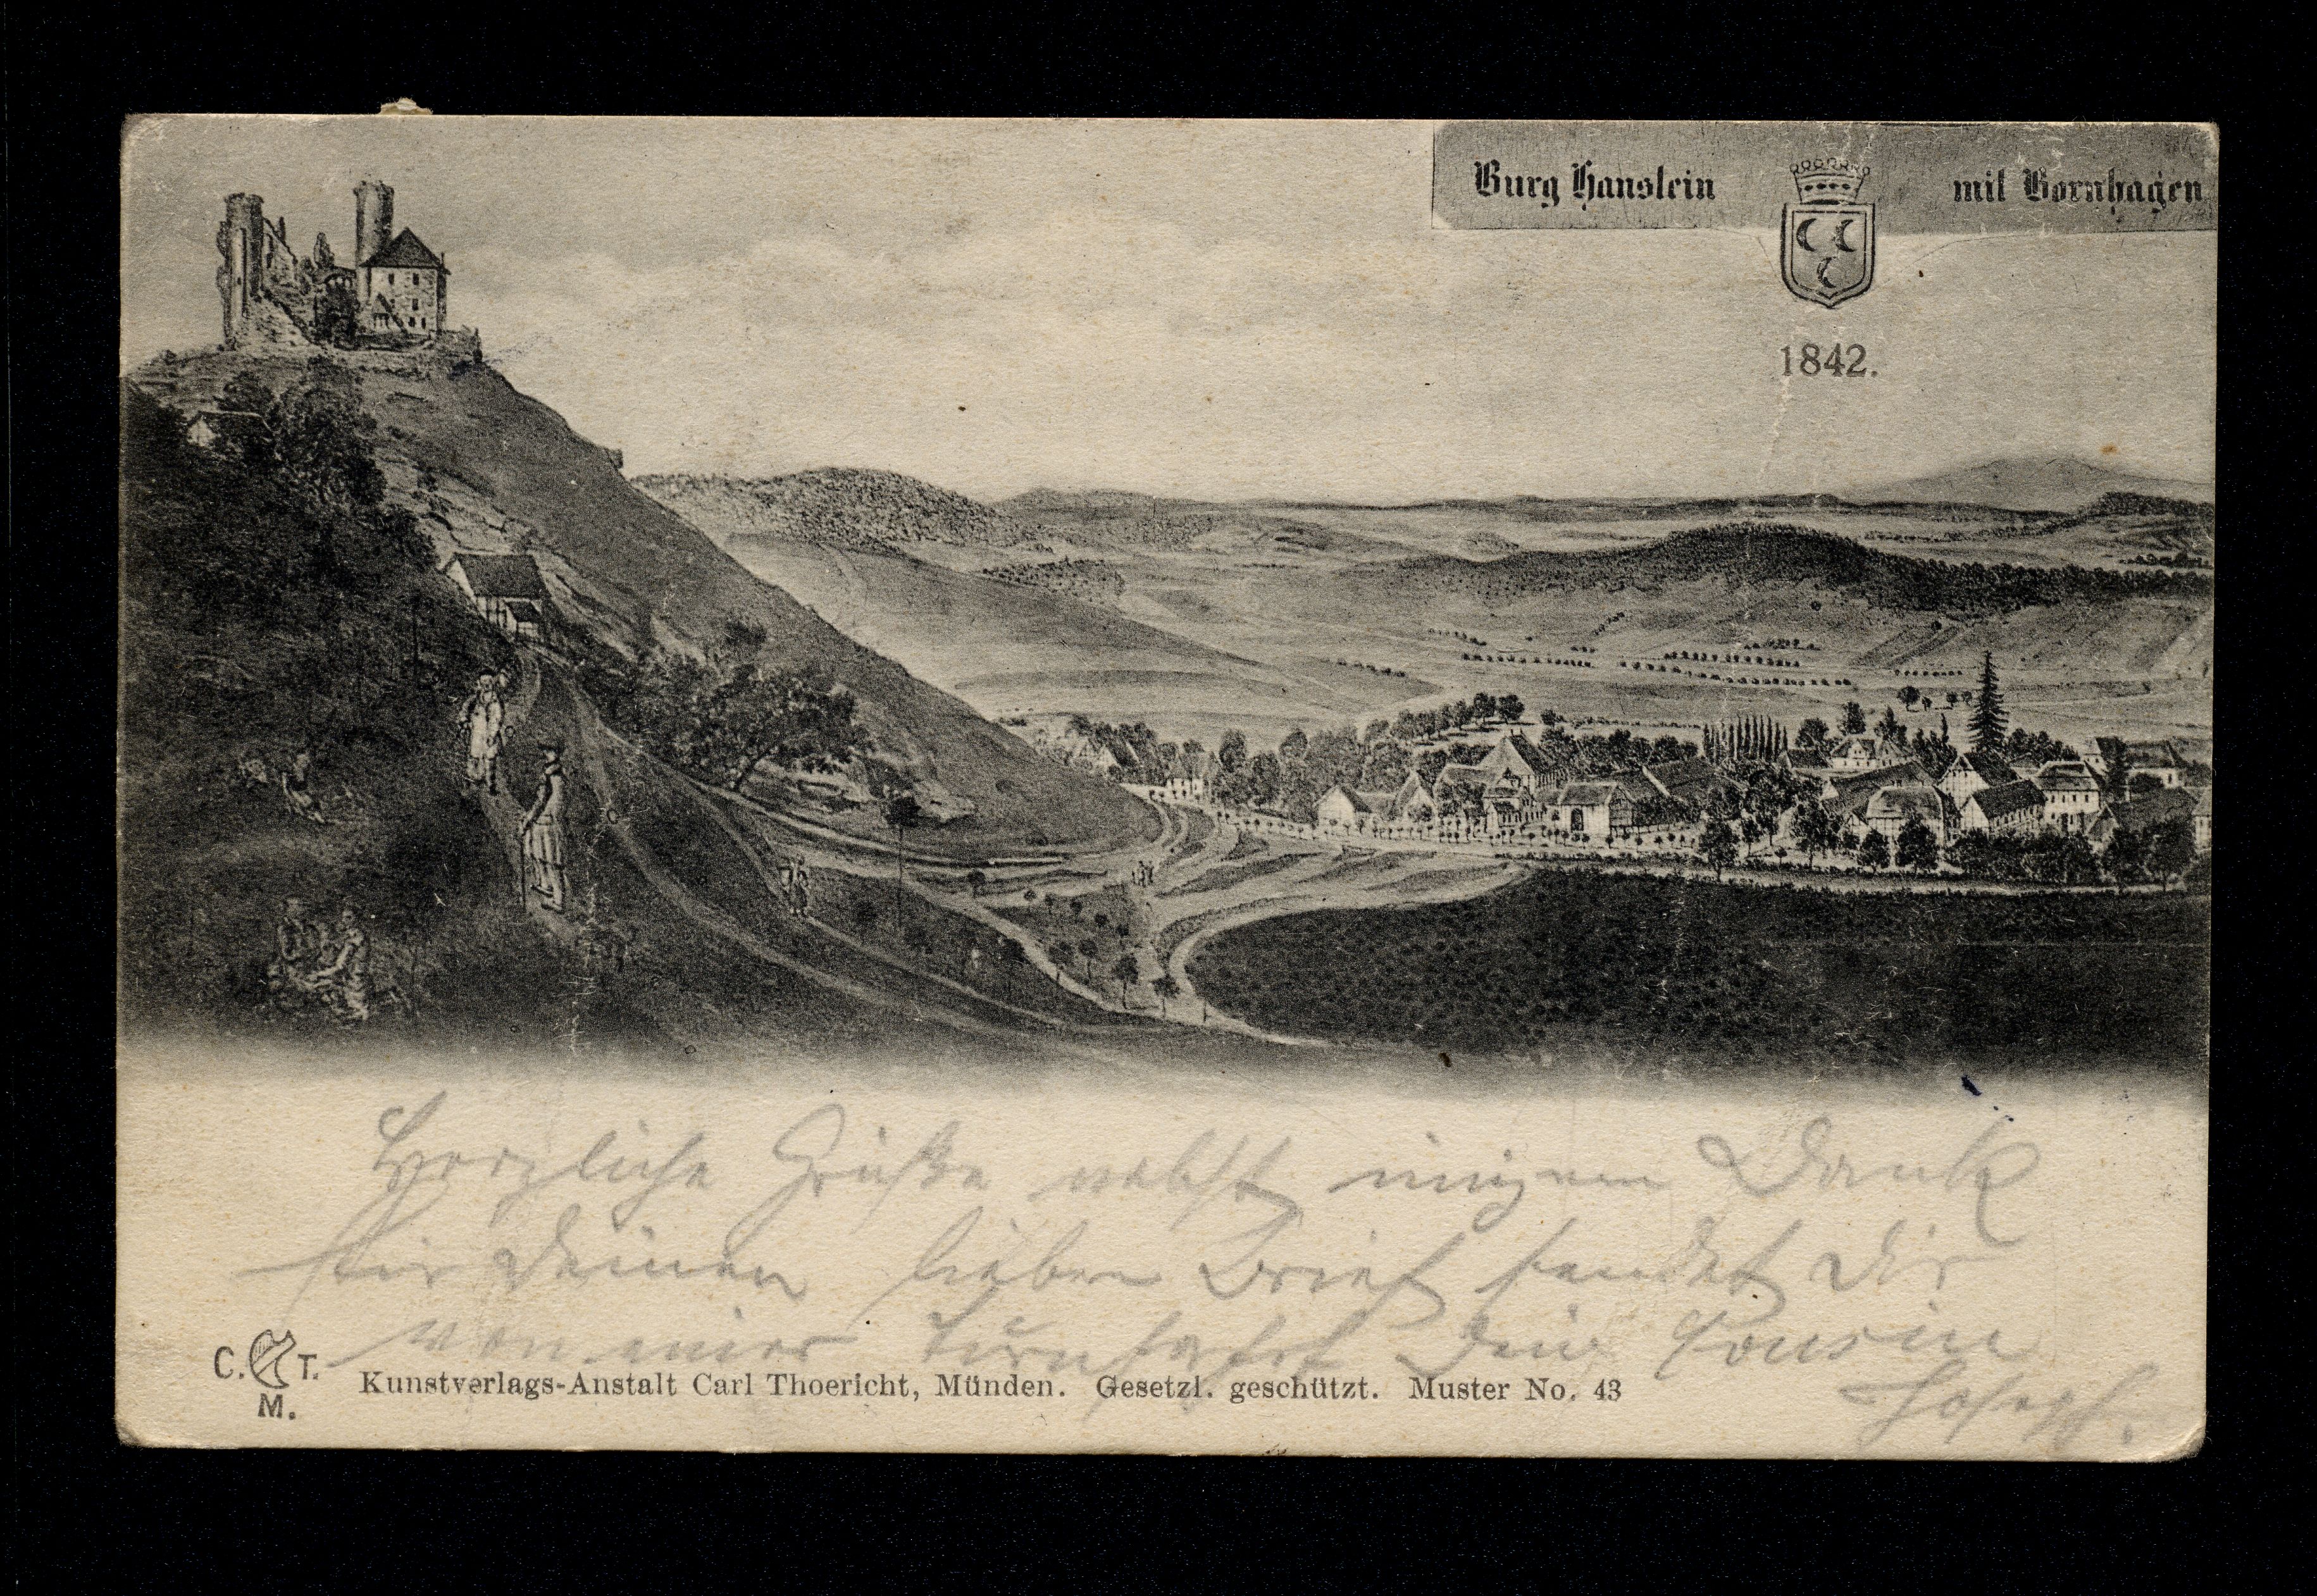 Burg Hanstein mit Bornhagen
1842.
Herzliche Grüße nebst innigem Dank
für Deinen lieben Brief sendet Dir
von einer Turnfahrt Dein Cousin
Joseph.
C. T.
M.
Kunstverlags-Anstalt Carl Thoericht, Münden. Gesetzl. geschützt. Muster No. 43